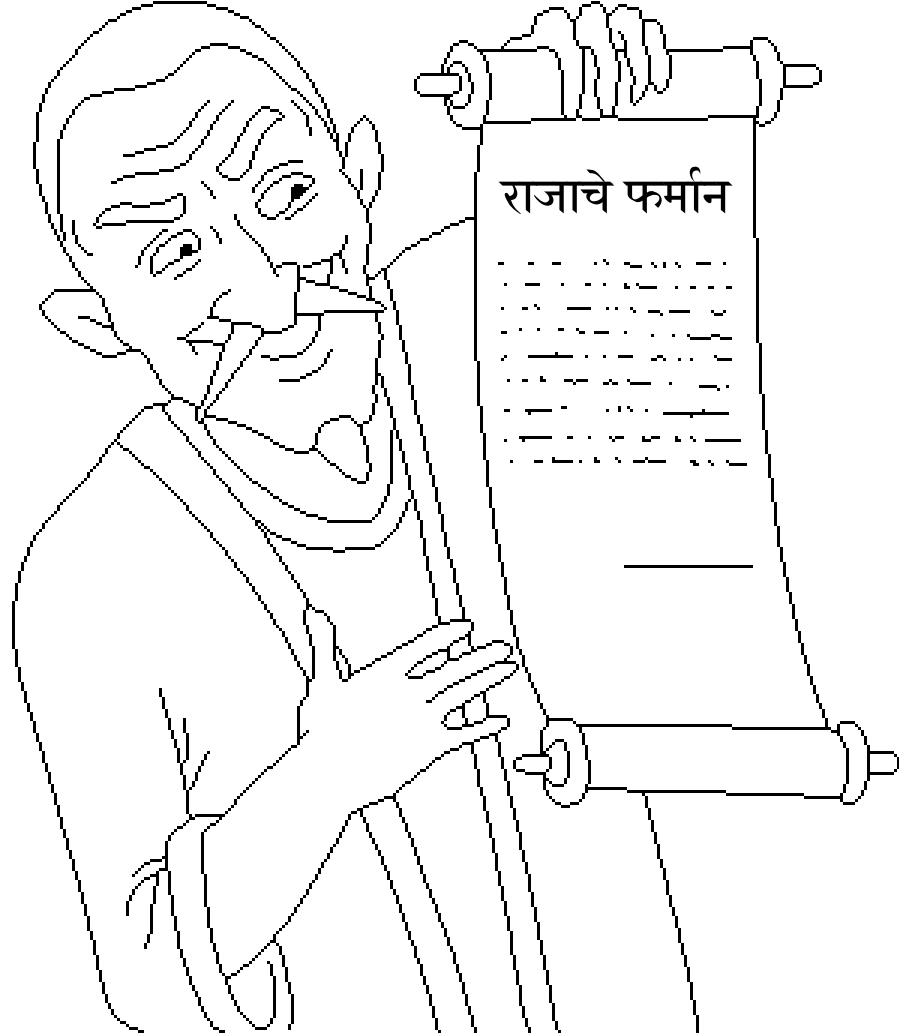 राजाचे फर्मान